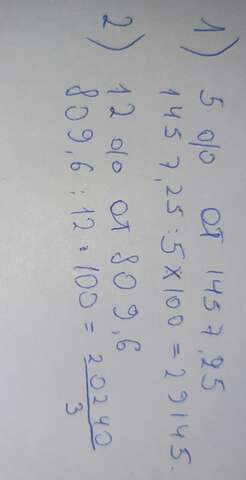 1) 5 % от 1457,25
1457,25 : 5 × 100 = 29145.
2) 12 % от 809,6
809,6 : 12 · 100 = 20240/3